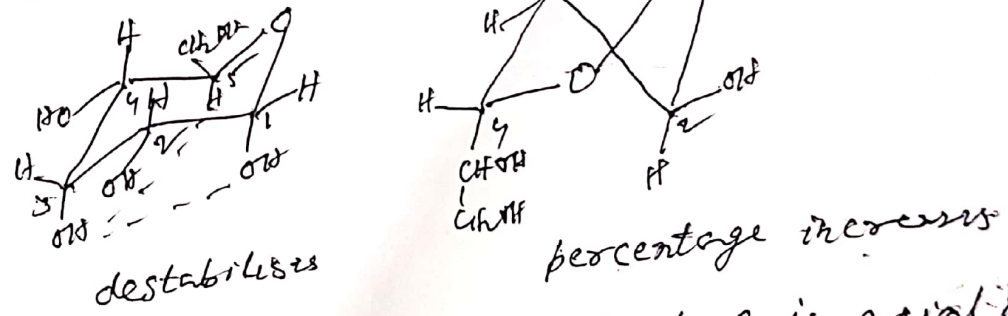 H
CH₂OH
O
H
HO
4
H
H
5
H
2
1
H
3
OH
OH
OH
destabilises
H
H
O
OH
4
2
CHOH
CH₂OH
H
percentage increases